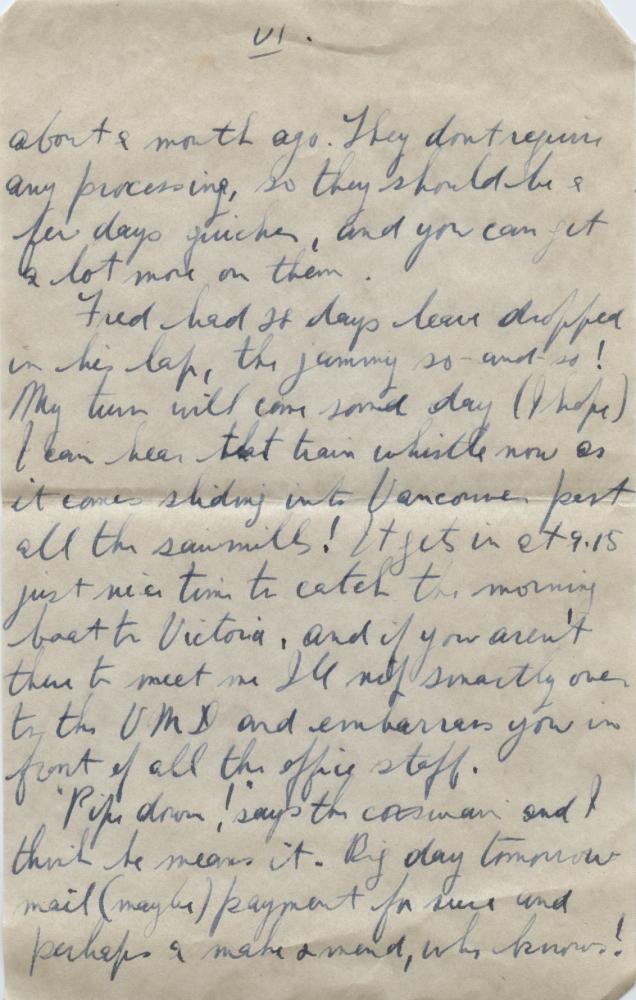 VI.
about a month ago. They dont require
any processing, so they should be a
few days quicker, and you can get
a lot more on them.
Fred had 28 days leave dropped
in his lap, the jammy so-and-so!
My turn will come some day (I hope)
I can hear that train whistle now as
it comes sliding into Vancouver past
all the sawmills! It gets in at 9.15
just nice time to catch the morning
boat to Victoria, and if you aren't
there to meet me I'll nip smartly over
to the VMD and embarrass you in
front of all the office staff.
"Pipe down!" says the coxswain and I
think he means it. Big day tomorrow
mail (maybe) payment for sure and
perhaps a make & mend, who knows!